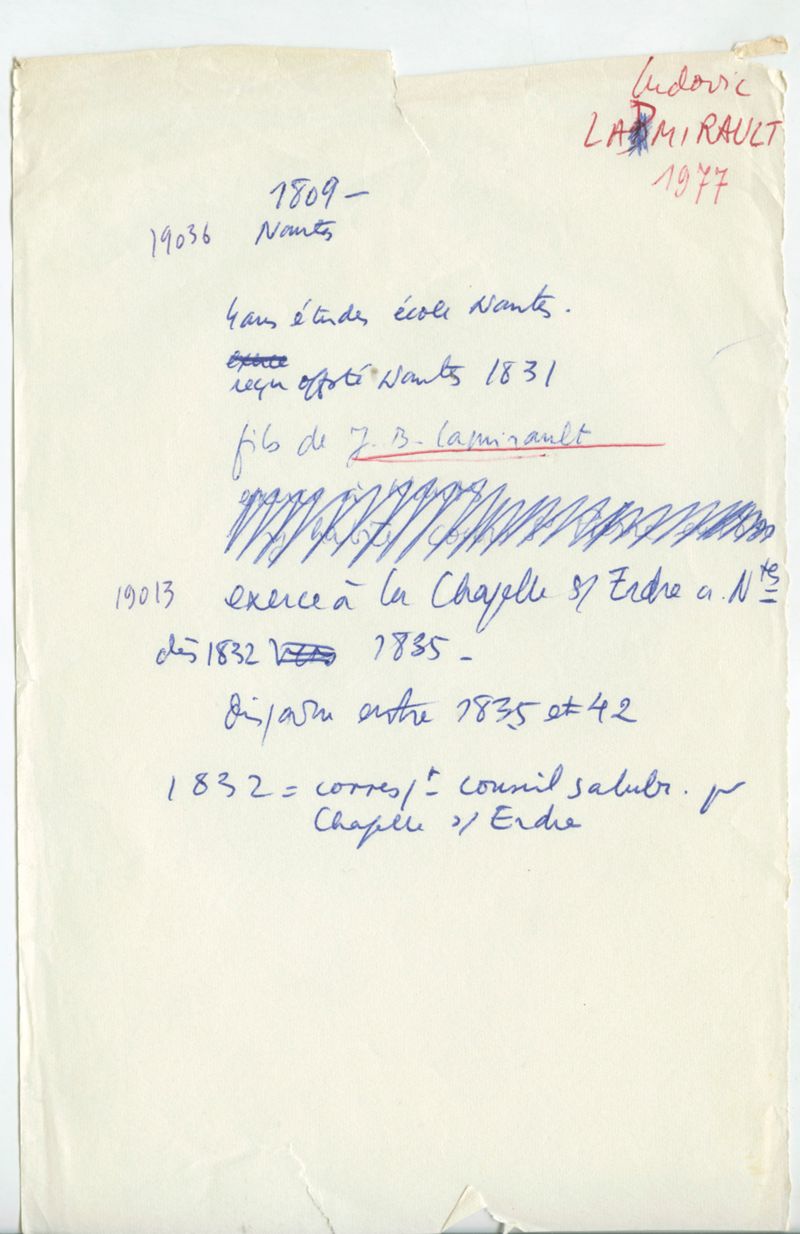 Ludovic
LAMIRAULT
1977
1809 –
19036 Nantes
4 ans études école Nantes.
exerce
reçu off. Nantes 1831
fils de J. B. Lamirault
19013 exerce à la Chapelle s/ Erdre a. Ntes
dès 1832 1835 –
disparu entre 1835 et 42
1832 = corresp.t conseil salubr. pr
Chapelle s/ Erdre